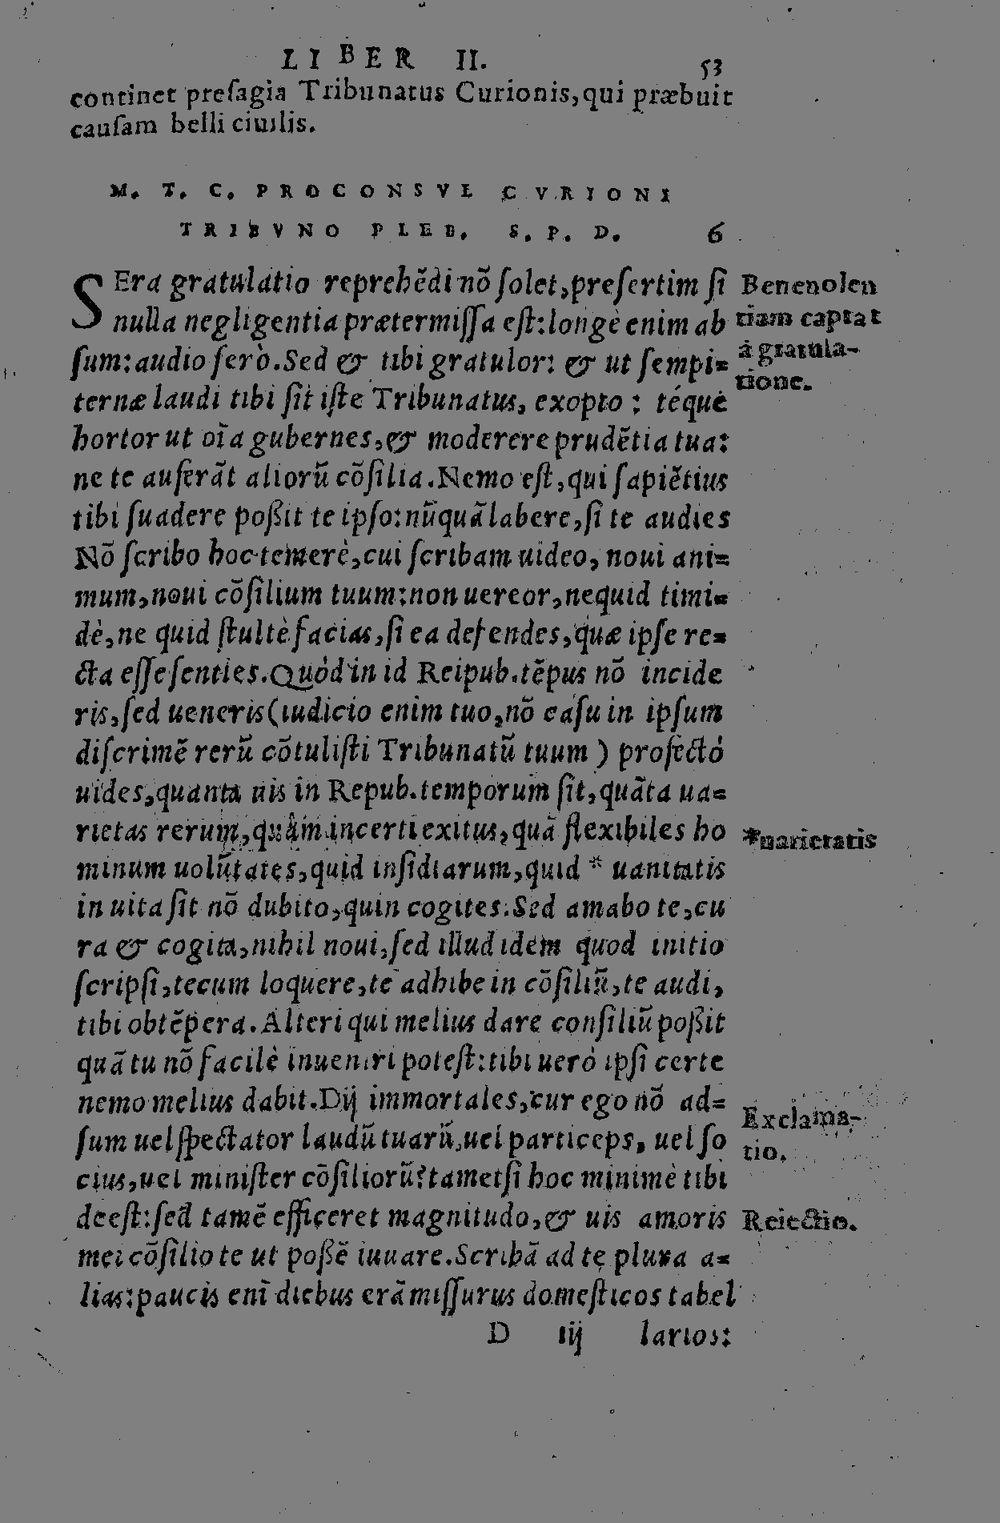 LIBER II. 53
continet presagia Tribunatus Curionis, qui præbuit
causam belli ciuilis.
M. T. C. PROCONSVL CVRIONI
TRIBVNO PLEB. S. P. D. 6
SEra gratulatio reprehẽdi nõ solet, presertim si
nulla negligentia prætermissa est: longè enim ab
sum: audio serò. Sed & tibi gratulor: & ut sempi=
ternæ laudi tibi sit iste Tribunatus, exopto: téque
hortor ut oĩa gubernes, & moderere prudẽtia tua:
ne te auferãt aliorũ cõsilia. Nemo est, qui sapiẽtius
tibi suadere poßit te ipso: nũquã labere, si te audies
Nõ scribo hoc temerè, cui scribam uideo, noui ani=
mum, noui cõsilium tuum: non uereor, nequid timi=
dè, ne quid stultè facias, si ea defendes, quæ ipse re=
cta esse senties. Quòd in id Reipub. tẽpus nõ incide
ris, sed ueneris (iudicio enim tuo, nõ casu in ipsum
discrimẽ rerũ cõtulisti Tribunatũ tuum) profectò
uides, quanta uis in Repub. temporum sit, quãta ua=
rietas rerum, quàm incerti exitus, quã flexibiles ho
minum uolũtates, quid insidiarum, quid * uanitatis
in uita sit nõ dubito, quin cogites. Sed amabo te, cu
ra & cogita, nihil noui, sed illud idem quod initio
scripsi, tecum loquere, te adhibe in cõsiliũ, te audi,
tibi obtẽpera. Alteri qui melius dare consiliũ poßit
quã tu nõ facilè inueniri potest: tibi uerò ipsi certe
nemo melius dabit. Dij immortales, cur ego nõ ad=
sum uel spectator laudũ tuarũ, uel particeps, uel so
cius, uel minister cõsiliorũ? tametsi hoc minimè tibi
deest: sed tamẽ efficeret magnitudo, & uis amoris
mei cõsilio te ut poßẽ iuuare. Scribã ad te plura a=
lias: paucis enĩ diebus erã missurus domesticos tabel
D iij larios:
Beneuolen
tiam captat
à gratula-
tione.
*uarietatis
Exclama-
tio.
Reiectio.